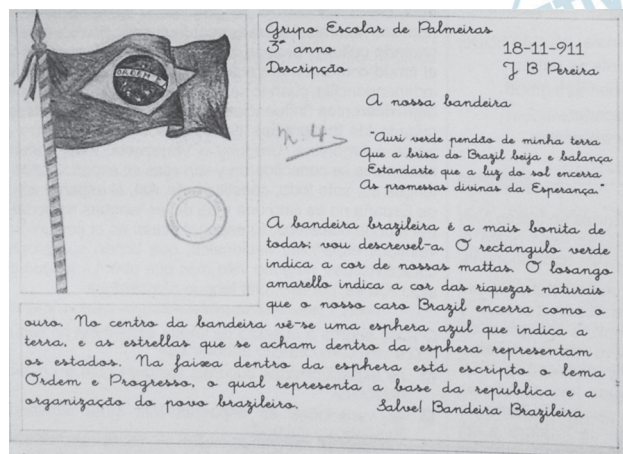 Grupo Escolar de Palmeiras
3º anno 18-11-911
Descripção J B Pereira
A nossa bandeira
n. 4
"Auri verde pendão de minha terra
Que a brisa do Brazil beija e balança
Estandarte que a luz do sol encerra
As promessas divinas da Esperança."
A bandeira brazileira é a mais bonita de
todas; vou descrevel-a. O rectangulo verde
indica a cor de nossas mattas. O losango
amarello indica a cor das riquezas naturais
que o nosso caro Brazil encerra como o
ouro. No centro da bandeira vê-se uma esphera azul que indica a
terra, e as estrellas que se acham dentro da esphera representam
os estados. Na faixa dentro da esphera está escripto o lema
Ordem e Progresso, o qual representa a base da republica e a
organização do povo brazileiro. Salve! Bandeira Brazileira